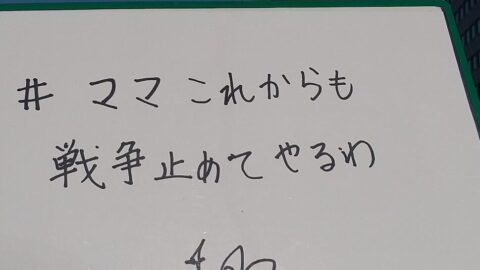 # ママ これからも
戦争止めてやるわ